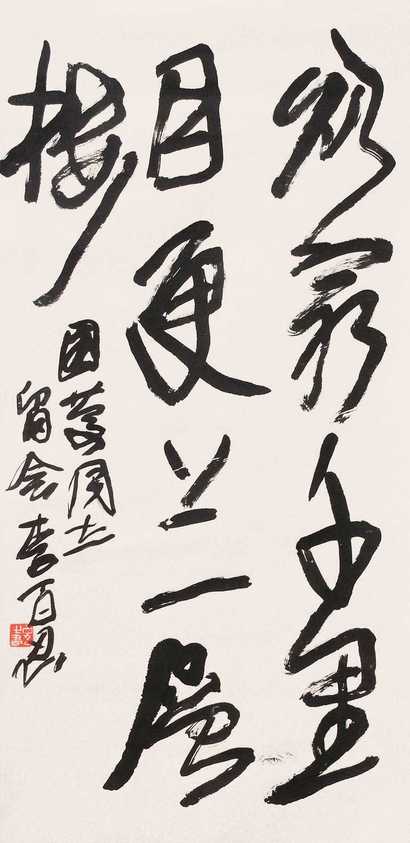 欲穷千里
目更上一层
楼
国庆同志
留念李百忍